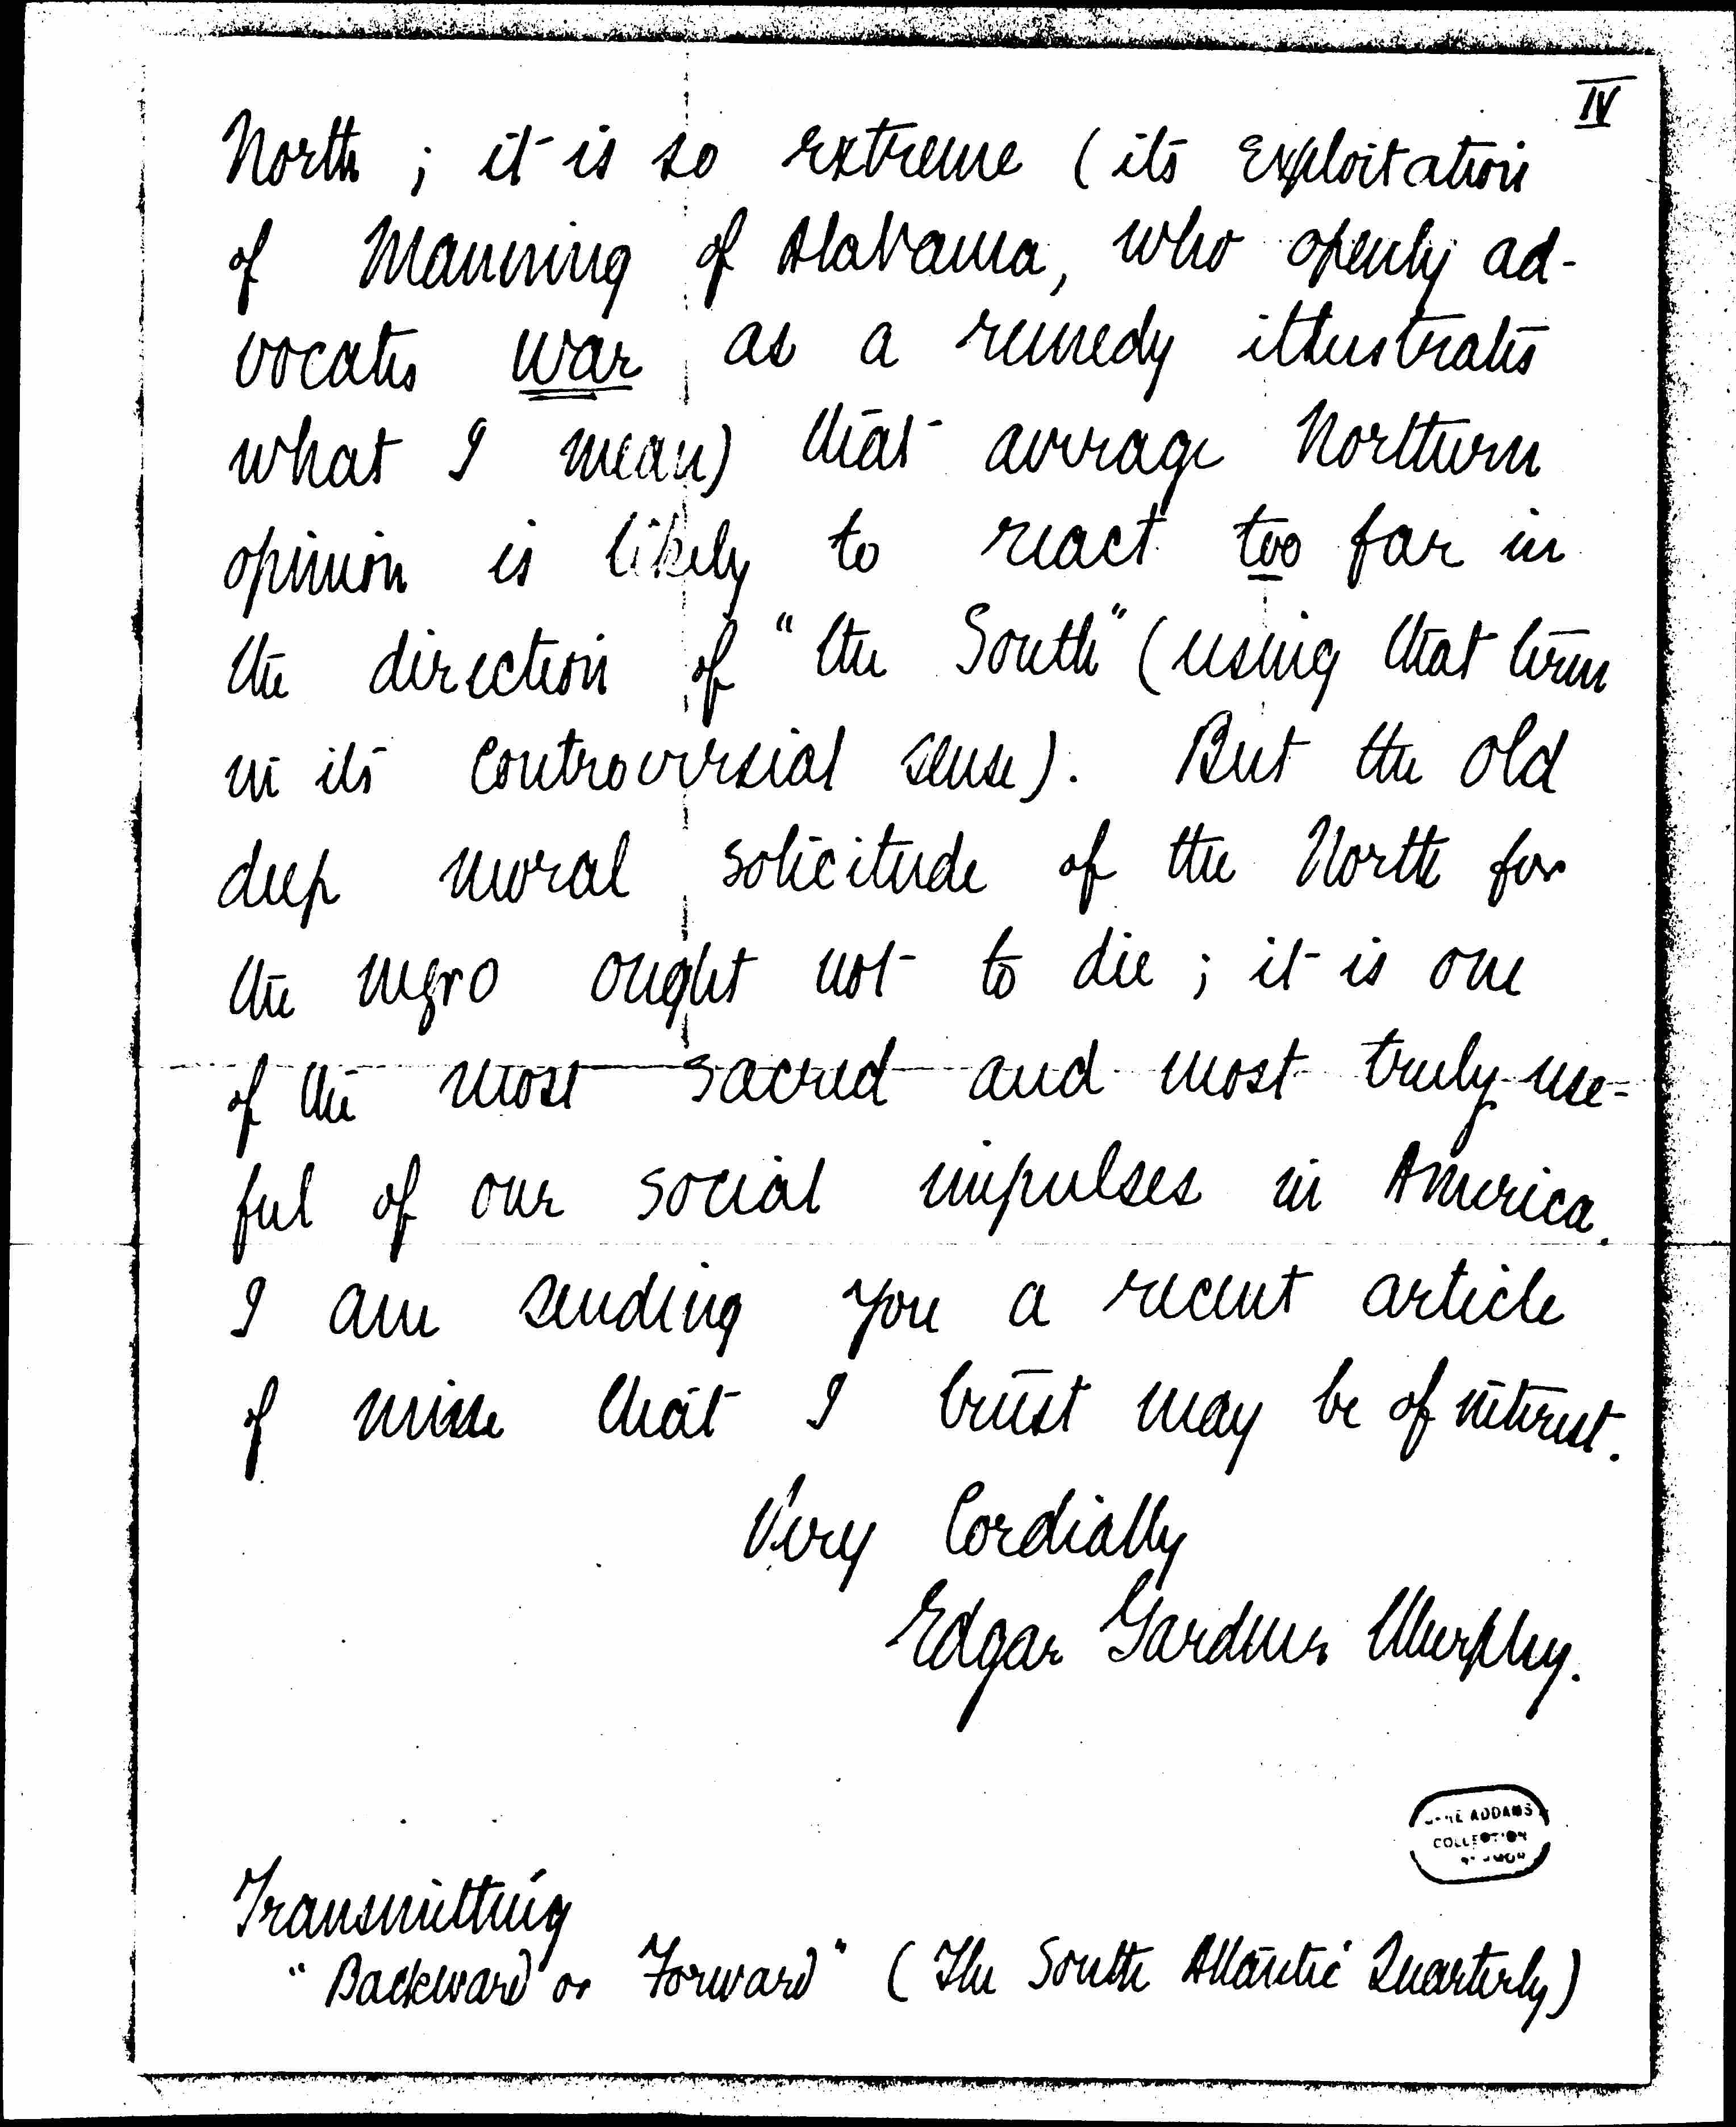 IV
North ; it is so extreme (its exploitation
of Manning of Alabama, who openly ad-
vocates war as a remedy illustrates
what I mean) that average Northern
opinion is likely to react too far in
the direction of "the South" (using that term
in its controversial sense). But the old
deep moral solicitude of the North for
the negro ought not to die ; it is one
of the most sacred and most truly use-
ful of our social impulses in America.
I am sending you a recent article
of mine that I trust may be of interest.
Very Cordially
Edgar Gardner Murphy.
ADDAMS
COLLECTION
Transmitting
"Backward or Forward" (The South Atlantic Quarterly)